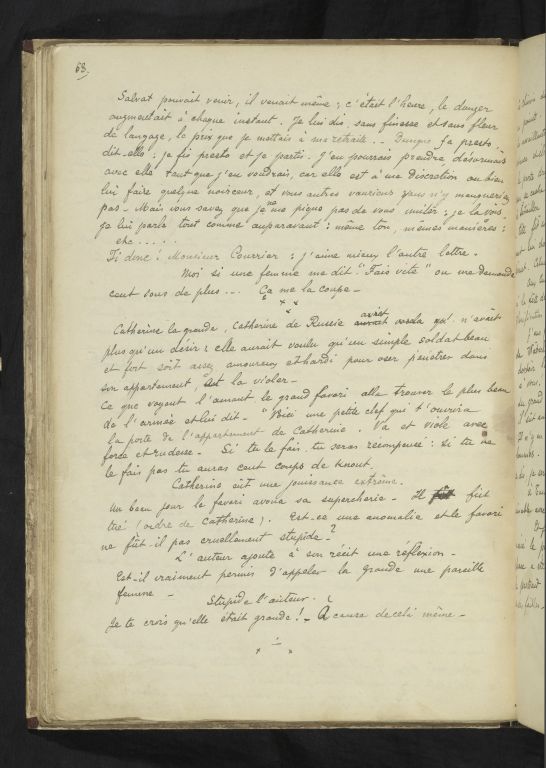 68.
Salvat pouvait venir, il venait même ; c'était l'heure, le danger
augmentait à chaque instant. Je lui dis, sans finesse et sans fleur
de langage, le prix que je mettais à ma retraite... Dunque fa presto
dit-elle : je fis presto et je partis. J'en pourrais prendre désormais
avec elle tant que j'en voudrais, car elle est à ma discrétion ou bien
lui faire quelque noirceur, et vous autres vauriens vous n'y manqueriez
pas. Mais vous savez que je ne me pique pas de vous imiter : je la vois
je lui parle tout comme auparavant : même ton, mêmes manières :
etc......
Fi donc ! Monsieur Courrier : j'aime mieux l'autre lettre.
Moi si une femme me dit "Fais vite" ou me demande
cent sous de plus... Ça me la coupe -
x x
x
Catherine la grande, Catherine de Russie avait qu'. n'avait
plus qu'un désir : elle aurait voulu qu'un simple soldat beau
et fort soit assez amoureux et hardi pour oser pénétrer dans
son appartement, et la violer -
Ce que voyant l'amant le grand favori alla trouver le plus beau
de l'armée et lui dit - "Voici une petite clef qui t'ouvrira
la porte de l'appartement de Catherine. Va et viole avec
force et rudesse - Si tu le fais, tu seras récompensé : Si tu ne
le fais pas tu auras cent coups de knout.
Catherine eût une jouissance extrême.
Un beau jour le favori avoua sa supercherie - Il fût
tué (ordre de Catherine). Est-ce une anomalie et le favori
ne fût-il pas cruellement stupide - ?
L'auteur ajoute à son récit une réflexion -
Est-il vraiment permis d'appeler la grande une pareille
femme -
Stupide l'auteur.
Je te crois qu'elle était grande ! - À cause de celà même -
x x